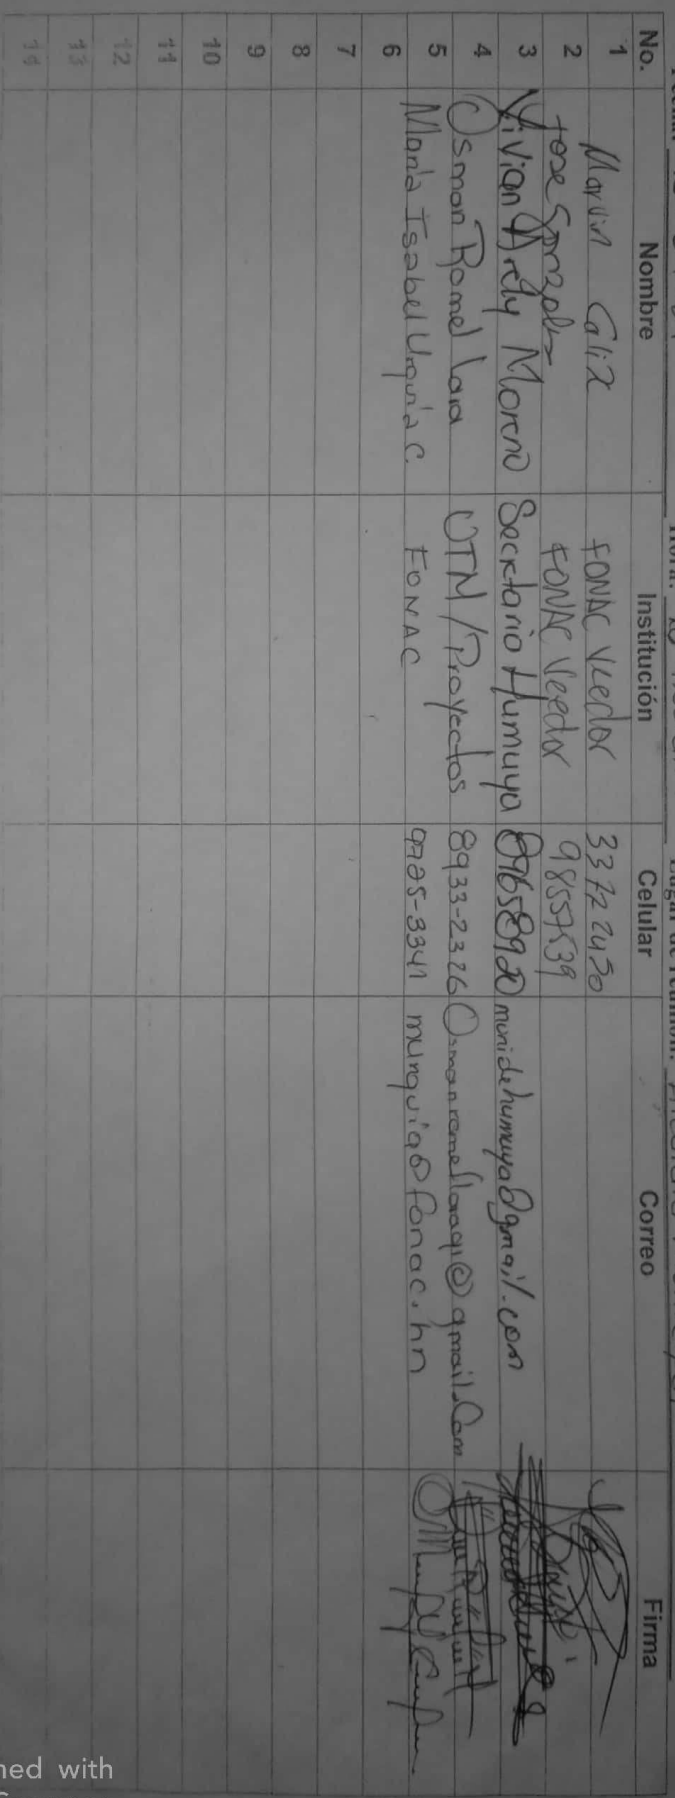 No. Nombre Institución Celular Correo Firma
1 Marvin Calix FONAC Veedor 33722450
2 Jose Gonzalez FONAC Veedor 98557539
3 Vivian Arely Moreno Secretario Humuya munidehumuya@gmail.com
4 Osman Romel Lara UTM/Proyectos 8933-2326 Osmanromellaraqi@gmail.com
5 Maria Isabel Urquia C. FONAC 9725-3341 murquia@fonac.hn
6
7
8
9
10
11
12
13
14
ned with